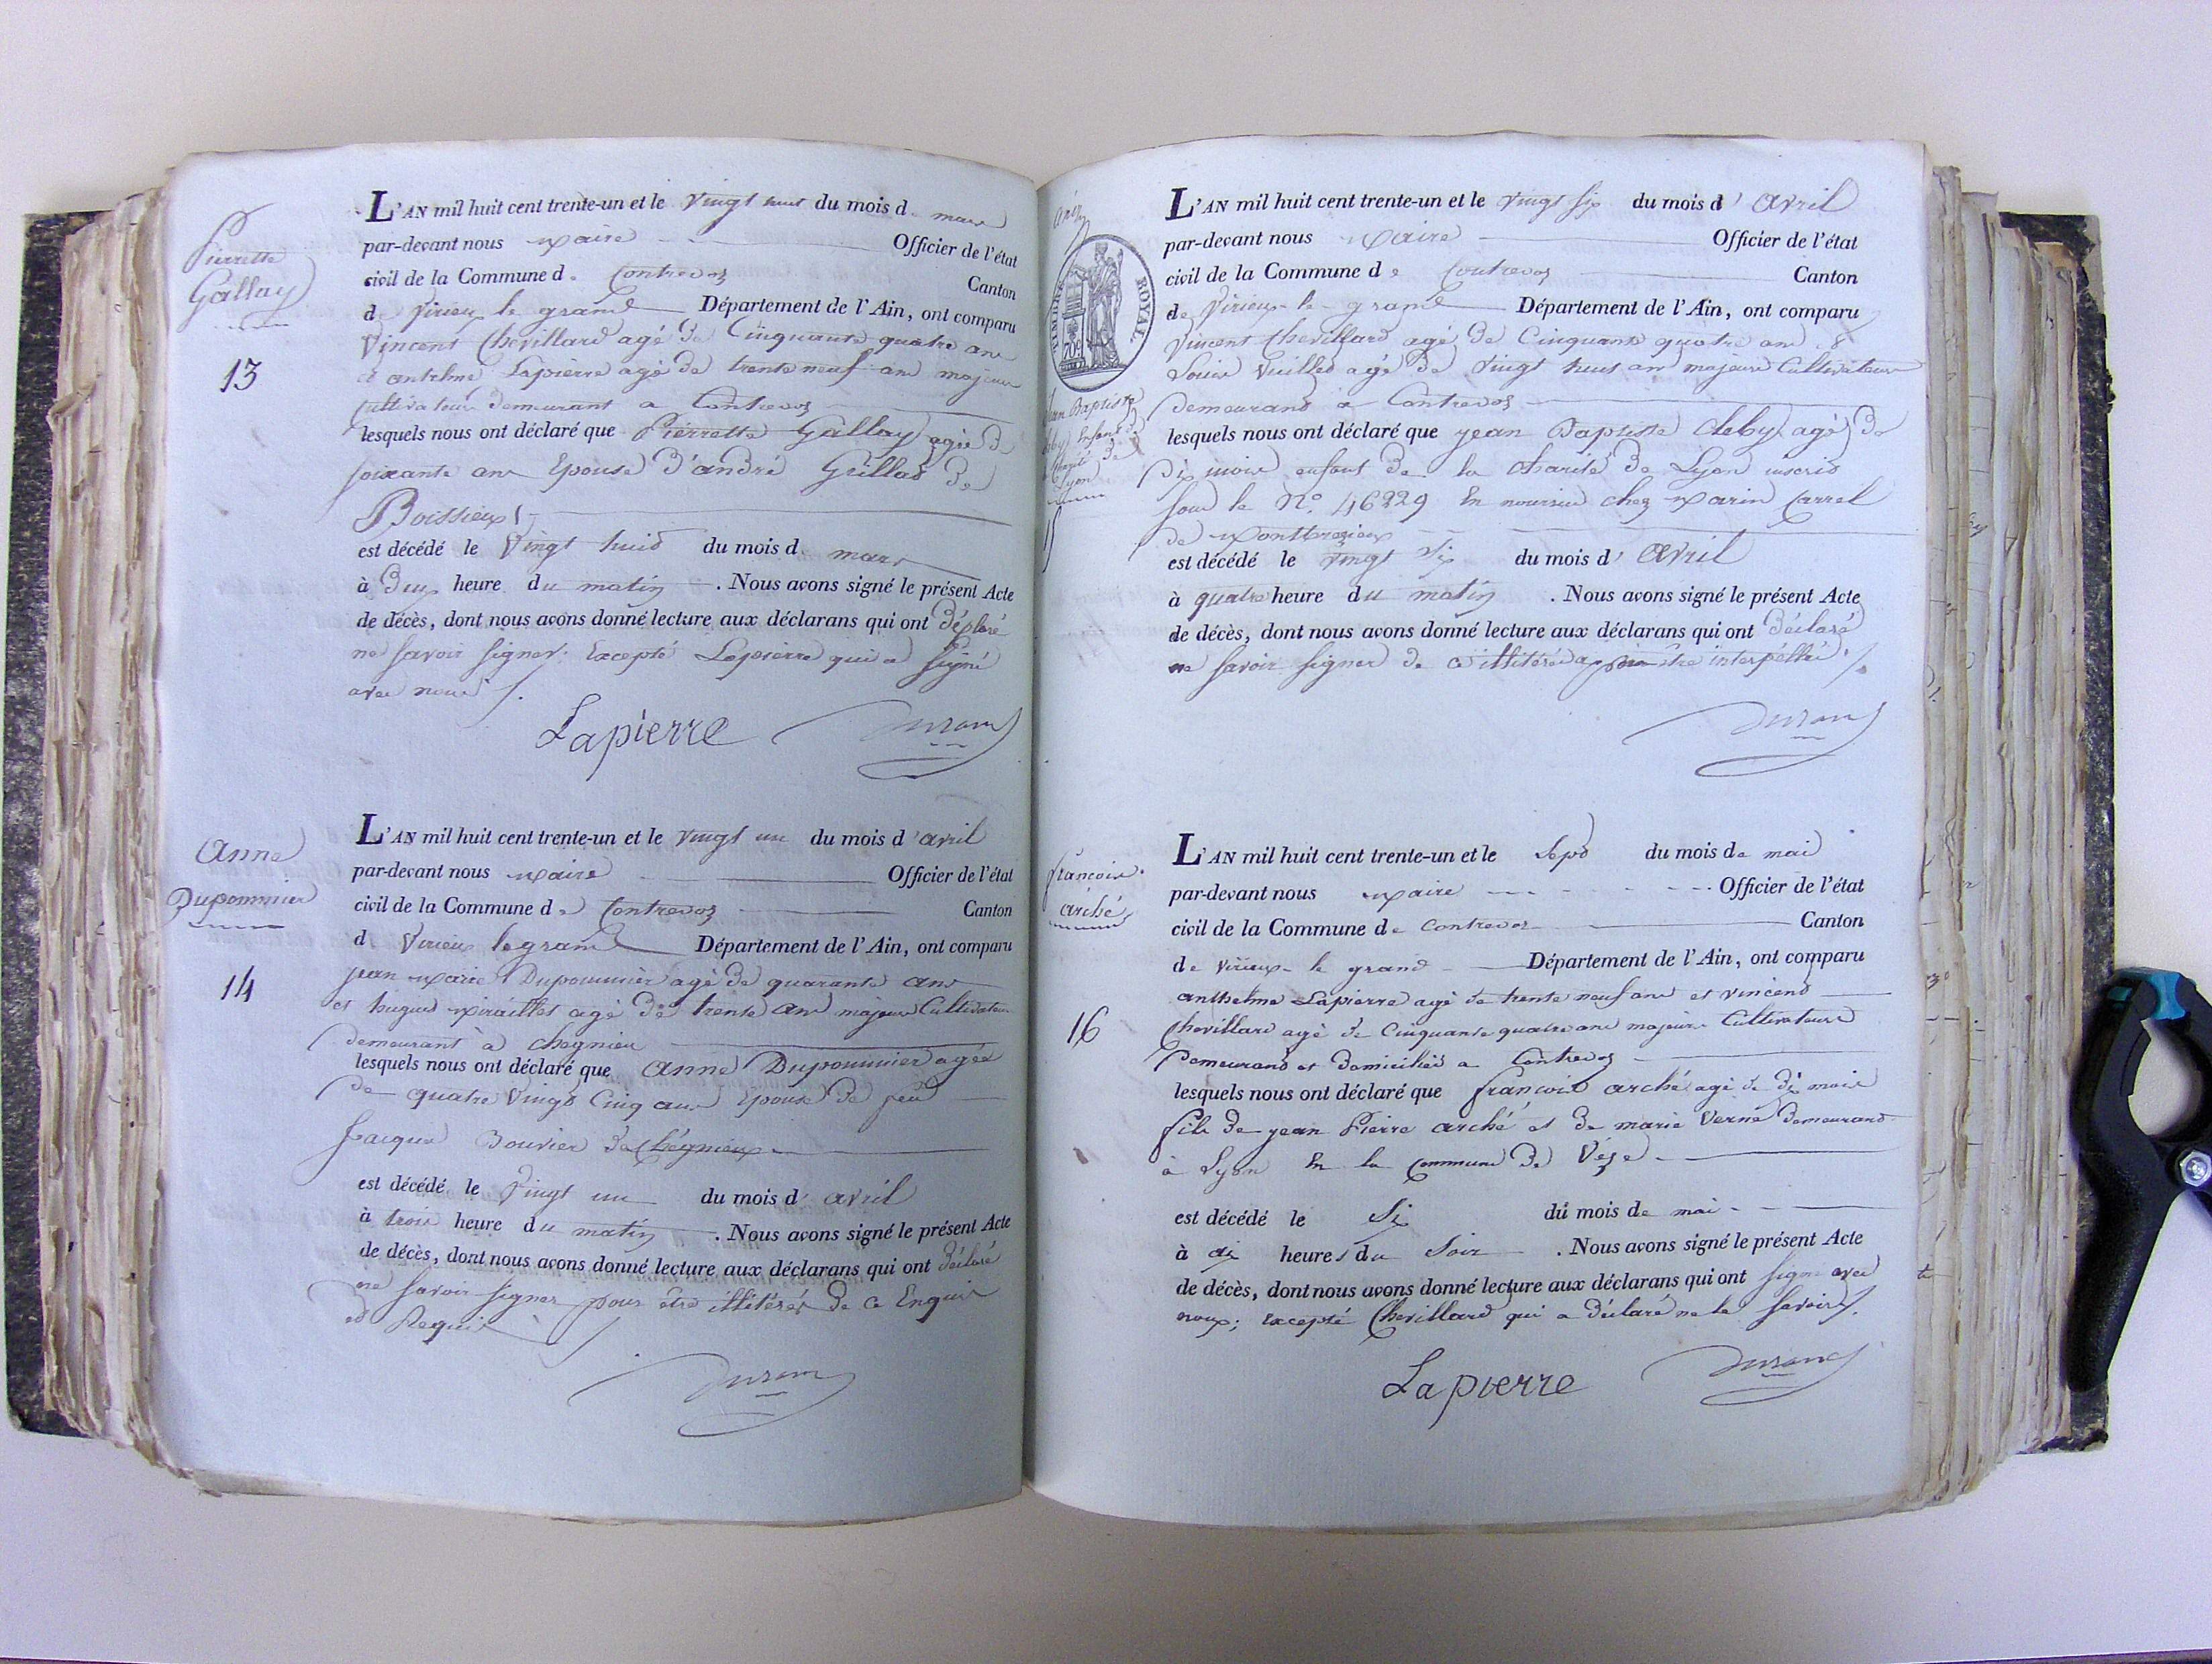 Pierrette
Gallay
13
L'AN mil huit cent trente-un et le vingt huit du mois d mars
par-devant nous maire Officier de l'état
civil de la Commune de Contrevoz Canton
de virieu le grand Département de l'Ain, ont comparu
Vincent Chevillard agé de Cinquante quatre ans
et antelme Lapierre agé de trente neuf ans majeurs
Cultivateurs demeurant a Contrevoz
lesquels nous ont déclaré que Pierrette Gallay agée de
soixante ans Epouse d'andré Grillat de
Boissieux
est décédé le Vingt huit du mois d. mars
à Deux heure du matin . Nous avons signé le présent Acte
de décès, dont nous avons donné lecture aux déclarans qui ont Déclaré
ne savoir signer. Excepté Lapierre qui a signé
avec nous /.
Lapierre Durand
Anne
Dupommier
14
L'AN mil huit cent trente-un et le vingt un du mois d'avril
par-devant nous maire Officier de l'état
civil de la Commune de Contrevoz Canton
d Virieu le grand Département de l'Ain, ont comparu
jean marie Dupommier agé de quarante ans
et hugues miraillet agé de trente ans majeurs Cultivateurs
demeurant à Chegnieu
lesquels nous ont déclaré que Anne Dupommier agée
de quatre Vingt Cinq ans Epouse de feu
Jacques Bouvier de Chégnieux
est décédé le Vingt un du mois d' avril
à trois heure du matin . Nous avons signé le présent Acte
de décès, dont nous avons donné lecture aux déclarans qui ont Déclaré
ne savoir signer pour être illitérés de ce Enquis
et Requis /
Durand
TIMBRE ROYAL
70c
Jean Baptiste
Enfant de
de
Lyon
15
L'AN mil huit cent trente-un et le vingt six du mois d' avril
par-devant nous maire Officier de l'état
civil de la Commune de Contrevoz Canton
de Virieux-le-grand Département de l'Ain, ont comparu
Vincent Chevillard agé de Cinquante quatre ans &
Louis Vuillod agé de Vingt huit ans majeurs Cultivateurs
Demeurand a Contrevoz
lesquels nous ont déclaré que jean Baptiste Cleby agé de
Dix mois enfant de la charité de Lyon inscrit
sous le N.o 46229 En nourrice chez marin Carrel
de Montbrezieux
est décédé le vingt Six du mois d' avril
à quatre heure du matin . Nous avons signé le présent Acte
de décès, dont nous avons donné lecture aux déclarans qui ont Déclaré
ne savoir signer de ce illitérés être interpéllés. /.
Durand
francois
arché
16
L'AN mil huit cent trente-un et le Sept du mois de mai
par-devant nous maire Officier de l'état
civil de la Commune de Contrevoz Canton
de virieux-le grand Département de l'Ain, ont comparu
anthelme Lapierre agé de trente neuf ans et vincend
Chevillard agé de Cinquante quatre ans majeurs Cultivateurs
Demeurand et Domiciliés a Contrevoz
lesquels nous ont déclaré que francois arché agé de dix mois
fils de jean Pierre arché et de marie Verne Demeurand
à Lyon En la Commune de Véze
est décédé le Six du mois de mai
à dix heures du Soir . Nous avons signé le présent Acte
de décès, dont nous avons donné lecture aux déclarans qui ont signé avec
nous; Excepté Chevillard qui a Déclaré ne le savoir /.
Lapierre Durand